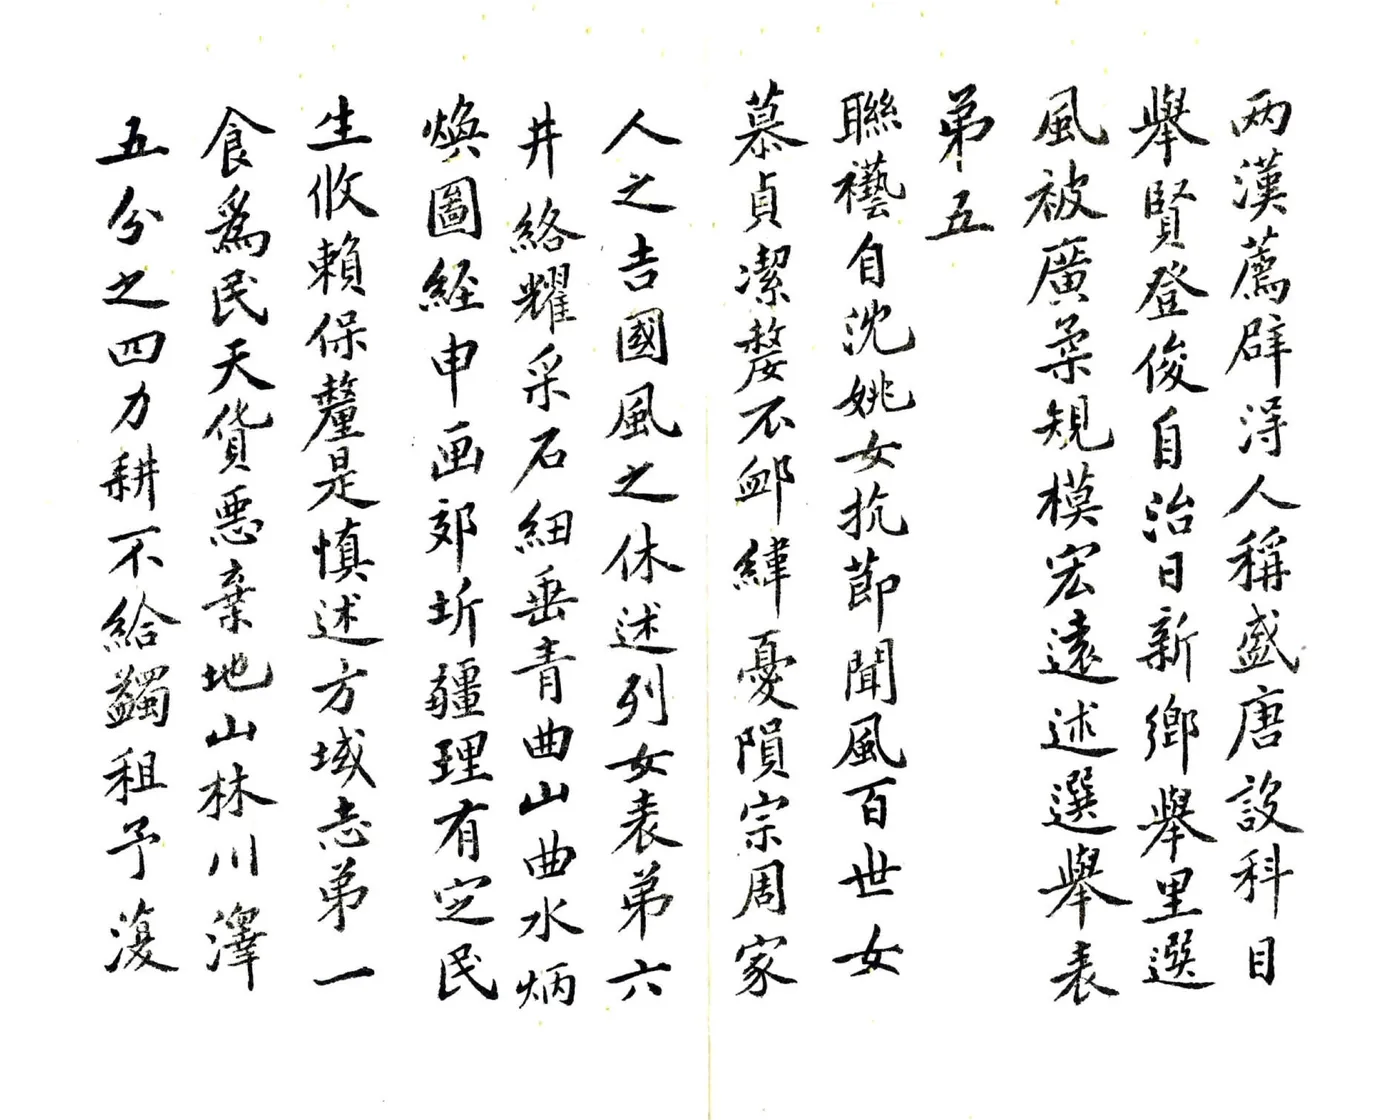 两漢薦辟淂人稱盛唐設科目
舉賢登俊自治日新鄉舉里選
風被廣柔規模宏遠述選舉表
弟五
聯襼自沈姚女抗節聞風百世女
慕貞潔嫠不䘏緯憂隕宗周家
人之吉國風之休述列女表弟六
井絡耀采石細垂青曲山曲水炳
煥圖経申画郊圻疆理有定民
生攸賴保釐是慎述方域志弟一
食爲民天貨悪棄地山林川澤
五分之四力耕不給蠲租予澓